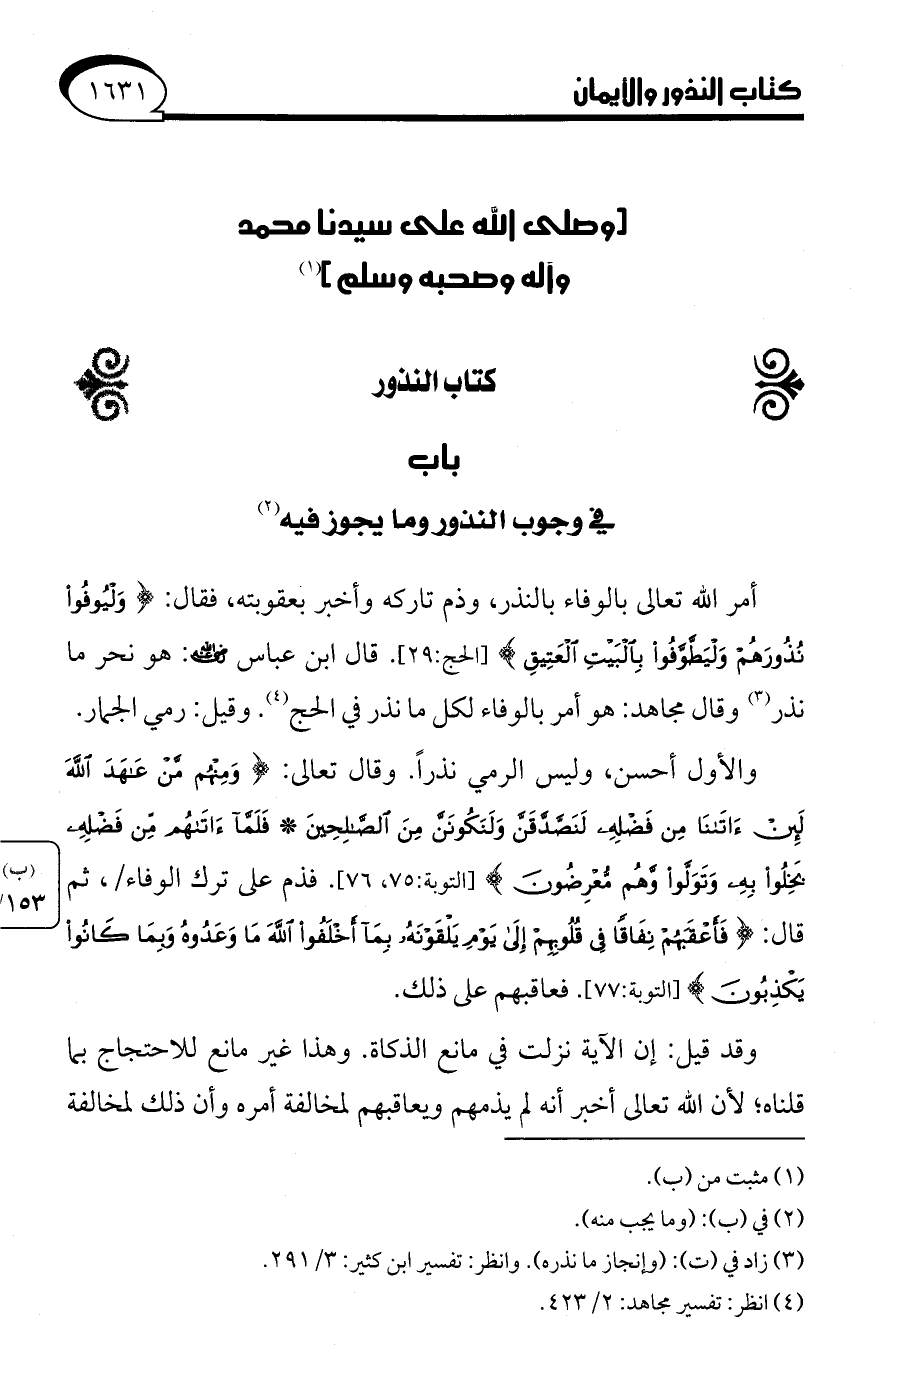 كتاب النذور والأيمان
١٦٣١
[وصلى الله على سيدنا محمد
وآله وصحبه وسلم](١)
كتاب النذور
باب
في وجوب النذور وما يجوز فيه(٢)
أمر الله تعالى بالوفاء بالنذر، وذم تاركه وأخبر بعقوبته، فقال: ﴿ وَلْيُوفُواْ
نُذُورَهُمْ وَلْيَطَّوَّفُواْ بِٱلْبَيْتِ ٱلْعَتِيقِ ﴾ [الحج:٢٩]. قال ابن عباس ﷺ: هو نحر ما
نذر(٣) وقال مجاهد: هو أمر بالوفاء لكل ما نذر في الحج(٤). وقيل: رمي الجمار.
والأول أحسن، وليس الرمي نذراً. وقال تعالى: ﴿ وَمِنْهُم مَّنْ عَـٰهَدَ ٱللَّهَ
لَئِنْ ءَاتَىٰنَا مِن فَضْلِهِۦ لَنَصَّدَّقَنَّ وَلَنَكُونَنَّ مِنَ ٱلصَّـٰلِحِينَ * فَلَمَّآ ءَاتَىٰهُم مِّن فَضْلِهِۦ
بَخِلُواْ بِهِۦ وَتَوَلَّواْ وَّهُم مُّعْرِضُونَ ﴾ [التوبة:٧٥، ٧٦]. فذم على ترك الوفاء/، ثم
(ب)
١٥٣/
قال: ﴿ فَأَعْقَبَهُمْ نِفَاقًا فِى قُلُوبِهِمْ إِلَىٰ يَوْمِ يَلْقَوْنَهُۥ بِمَآ أَخْلَفُواْ ٱللَّهَ مَا وَعَدُوهُ وَبِمَا كَانُواْ
يَكْذِبُونَ ﴾ [التوبة:٧٧]. فعاقبهم على ذلك.
وقد قيل: إن الآية نزلت في مانع الذكاة. وهذا غير مانع للاحتجاج بما
قلناه؛ لأن الله تعالى أخبر أنه لم يذمهم ويعاقبهم لمخالفة أمره وأن ذلك لمخالفة
(١) مثبت من (ب).
(٢) في (ب): (وما يجب منه).
(٣) زاد في (ت): (وإنجاز ما نذره). وانظر: تفسير ابن كثير: ٣/ ٢٩١.
(٤) انظر: تفسير مجاهد: ٢/ ٤٢٣.